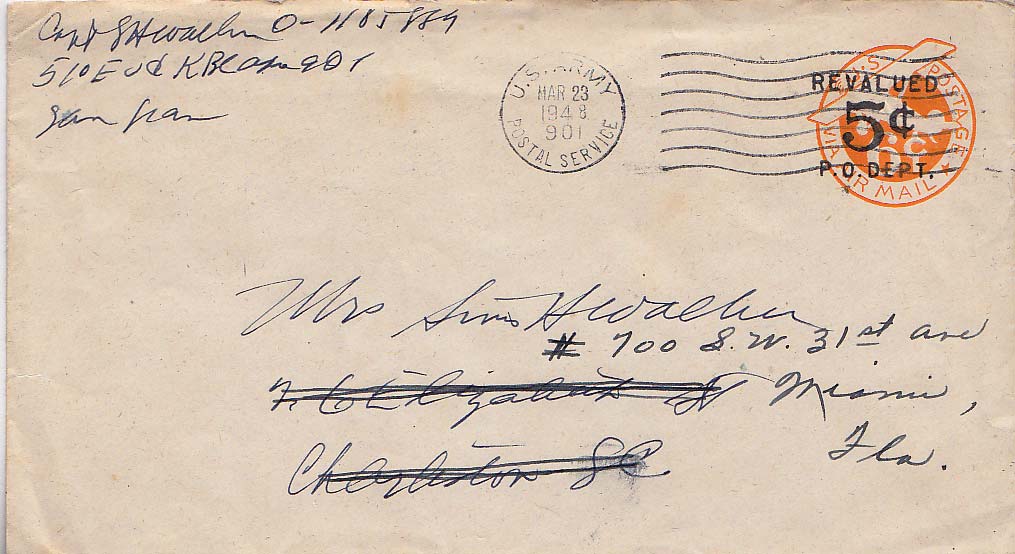 Capt S H Walker O-1185889
510 E
San Fran
U.S. ARMY
MAR 23
1948
901
POSTAL SERVICE
U.S. POSTAGE
REVALUED
5¢
P.O. DEPT.
6c
VIA AIR MAIL
Mrs Sims H Walker
# 700 S.W. 31st ave
Elizabeth St Miami,
Charleston SC Fla.